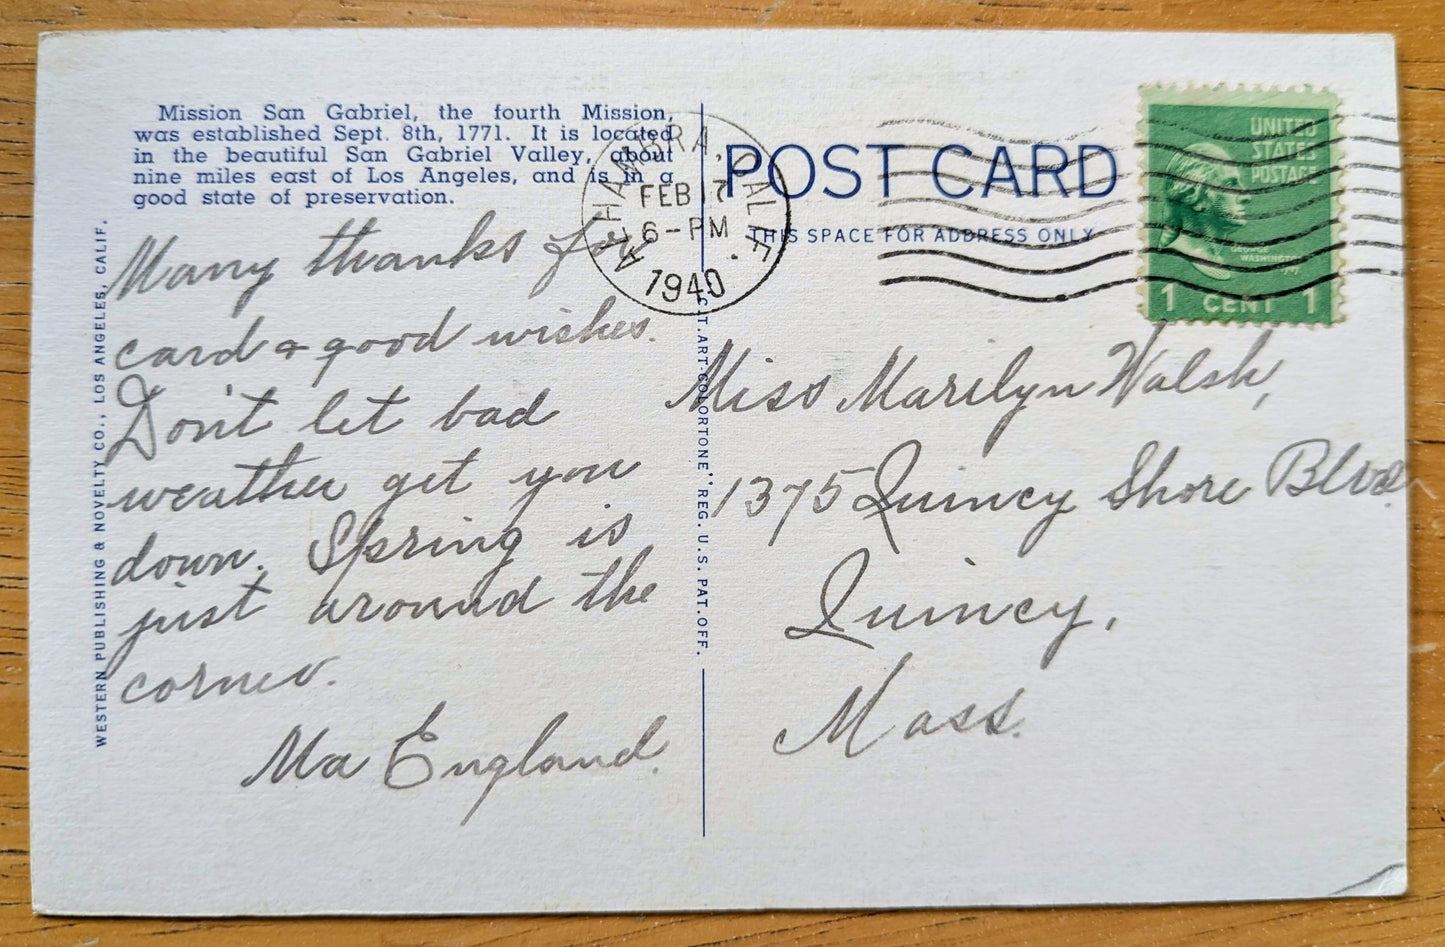 Mission San Gabriel, the fourth Mission,
was established Sept. 8th, 1771. It is located
in the beautiful San Gabriel Valley, about
nine miles east of Los Angeles, and is in a
good state of preservation.
Many thanks for
card & good wishes.
Don't let bad
weather get you
down. Spring is
just around the
corner.
Ma England.
WESTERN PUBLISHING & NOVELTY CO., LOS ANGELES, CALIF.
C.T. ART-COLORTONE" REG. U.S. PAT. OFF.
ALHAMBRA, CALIF.
FEB 17
6-PM
1940
POST CARD
THIS SPACE FOR ADDRESS ONLY
UNITED
STATES
POSTAGE
WASHINGTON
1 CENT 1
Miss Marilyn Walsh,
1375 Quincy Shore Blvd.
Quincy,
Mass.